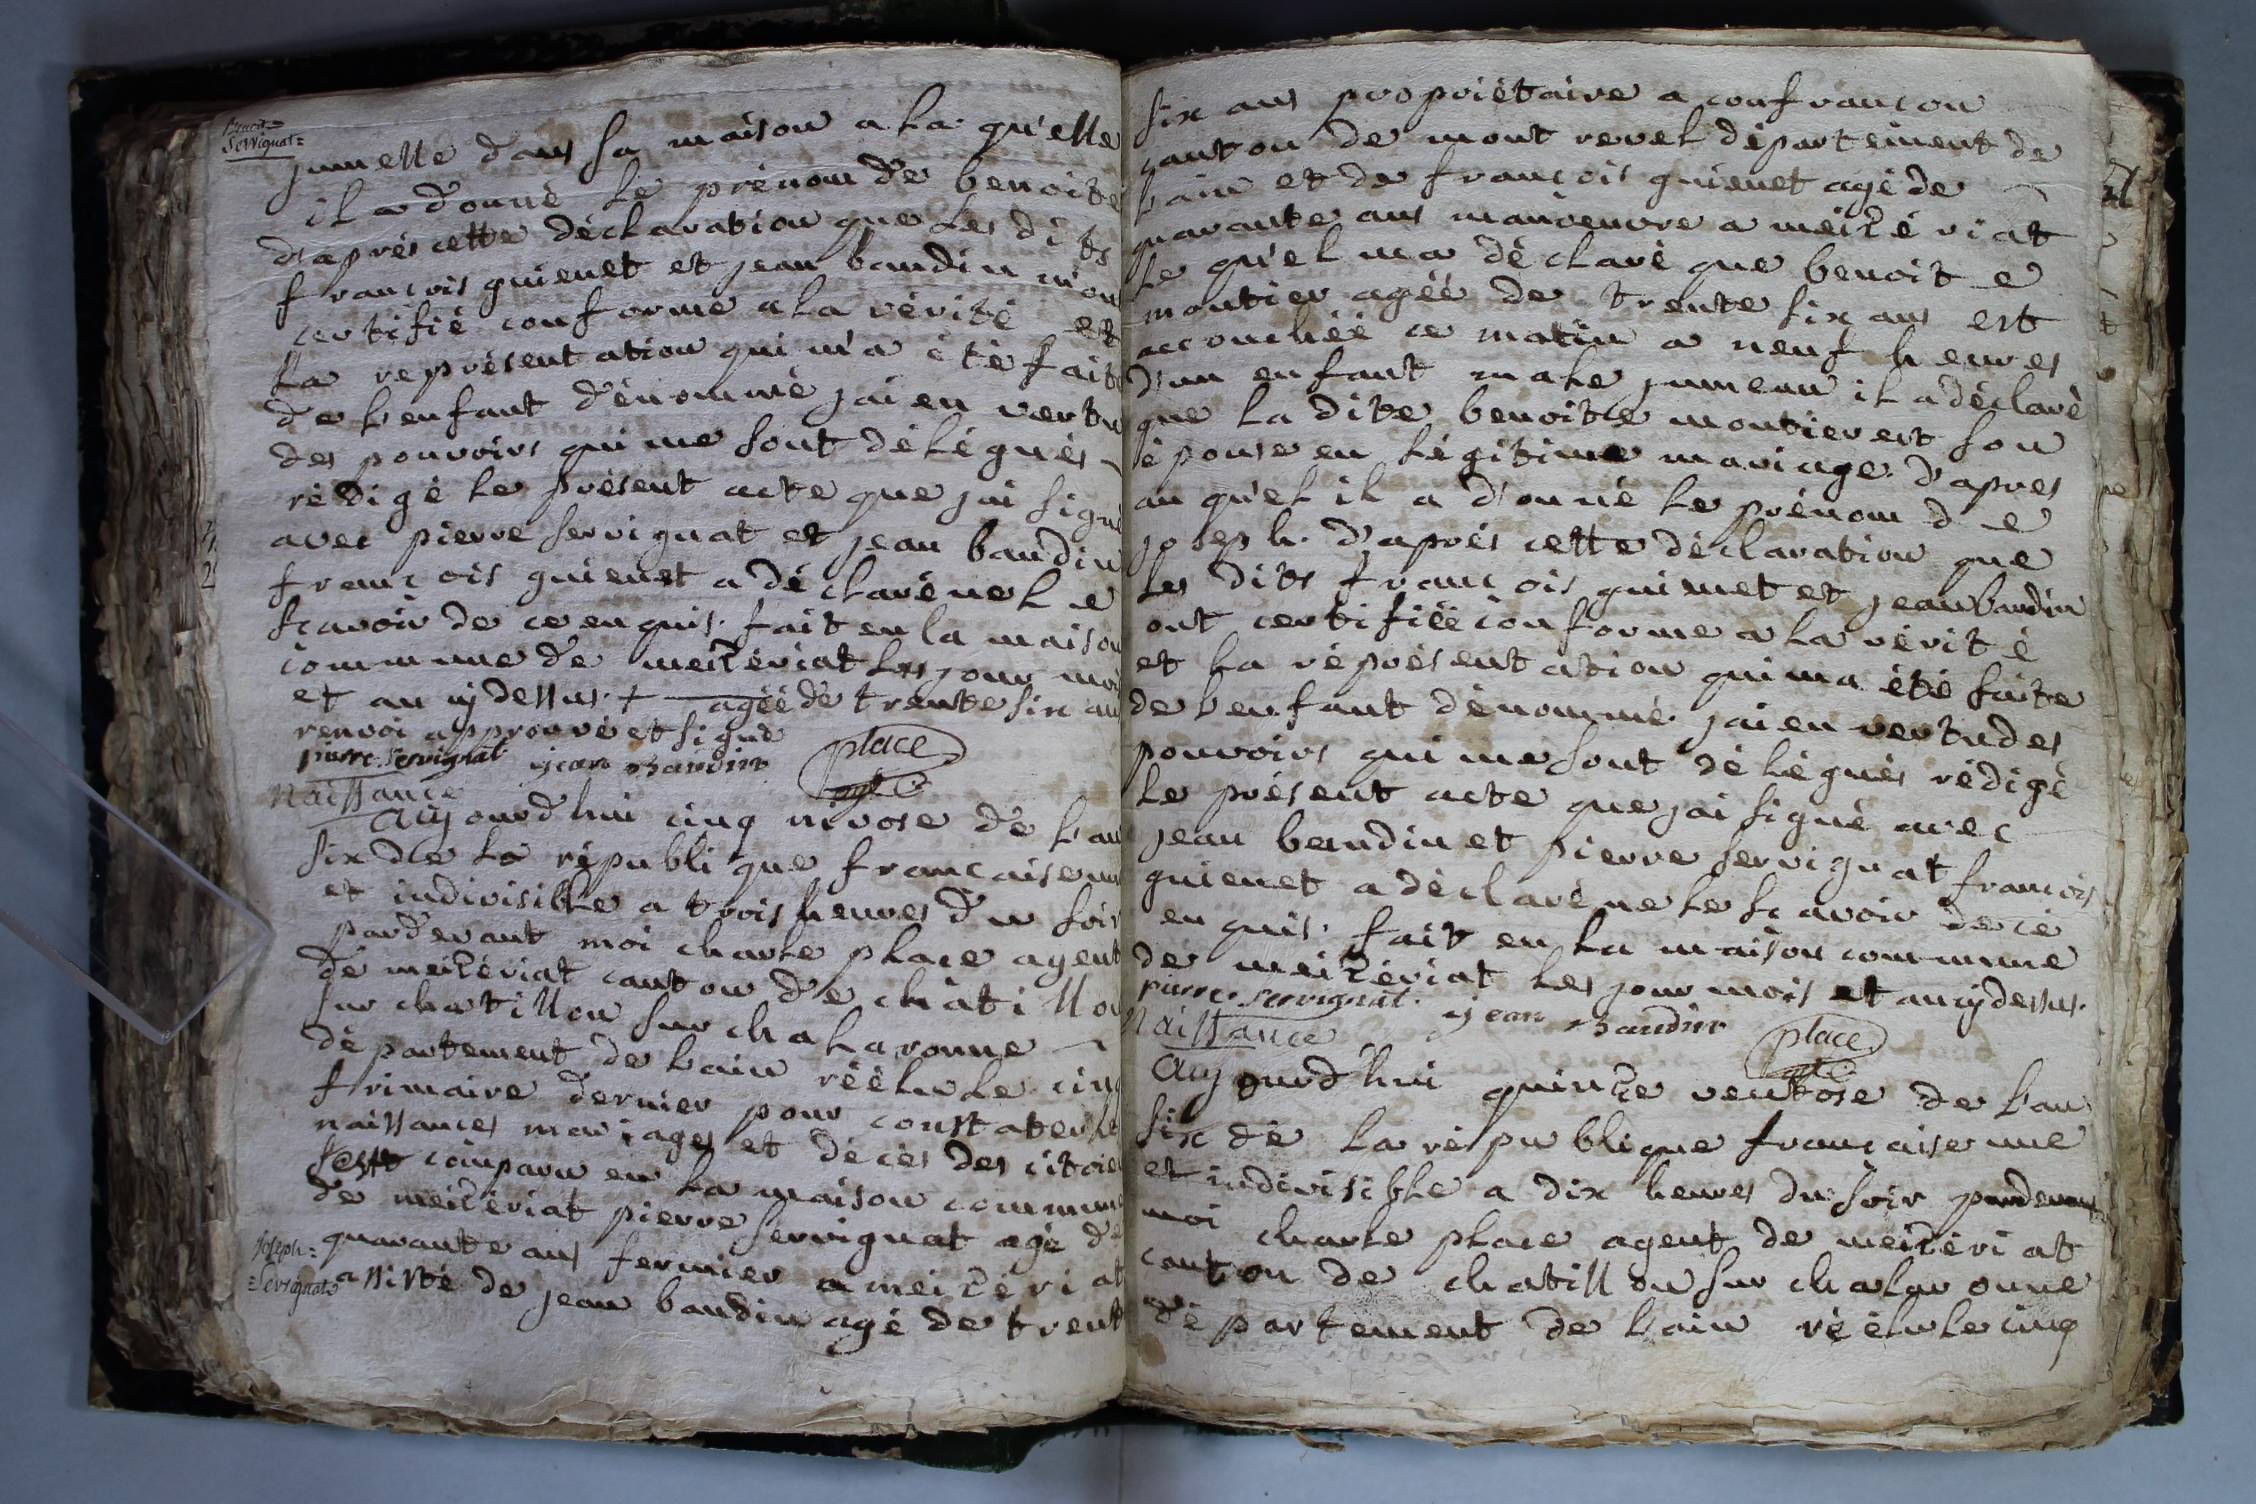 Servignat=
jumelle dans sa maison a la qu'elle
il a donné le prénom de benoite
d'après cette déclaration que les dits
françois guienet et jean baudin m'on
certifié conforme a la vérité et
la représentation qui m'a été faite
de l'enfant dénommé jai en vertu
des pouvoirs qui me sont délégués
rédigé le présent acte que jai signé
avec pierre servignat et jean baudin
françois guienet a déclaré ne le
sçavoir de ce enquis. fait en la maison
commune de meizériat les jour moi
et an cydessus. + agéé de trente six an
renvoi approuvé et signé
pierre. servignat jean baudin place
Naissance
Aujourd'hui cinq nivose de l'an
six de la république francaise une
et indivisible a trois heures du soir
pardevant moi charle place agent
de meizériat canton de châtillon
sur chatillon sur chalaronne
département de l'ain réélu le cinq
frimaire dernier pour constater les
naissances mariages et décès des citoien
sest comparu en la maison commune
de meizériat pierre servignat agé de
quarante ans fermier a meizériat
joseph=
=Servignat
assisté de jean baudin agé de trent
six ans propriétaire a confrançon
canton de mont revel département de
l'ain et de françois guienet agé de
quarante ans manoeuvre a meizériat
le qu'el ma déclaré que benoit e
montier agéé de trente six ans est
accouchéé ce matin a neuf heures
d'un enfant male jumeau il a déclaré
que la dite benoite montier est son
épouse en légitime mariage d'apres
au qu'el il a donné le prénom de
joseph. d'après cette déclaration que
les dits françois guienet et jean baudin
ont certifiéé conforme a la vérité
et la représentation qui ma été faite
de l'enfant dénommé jai en vertu des
pouvoirs qui me sont délégués rédigé
le présent acte que jai signé avec
jean baudin et pierre servignat françois
guienet a déclaré ne le sçavoir de ce
enquis. fait en la maison commune
de meizériat les jour mois et an cydessus.
pierre. servignat. jean baudin place
Naissance
Aujourd'hui quinze ventose de l'an
six de la république française une
et indivisible a dix heures du soir pardevant
moi charle place agent de meizériat
canton de chatillon sur chalaronne
département de l'ain réélu le cinq